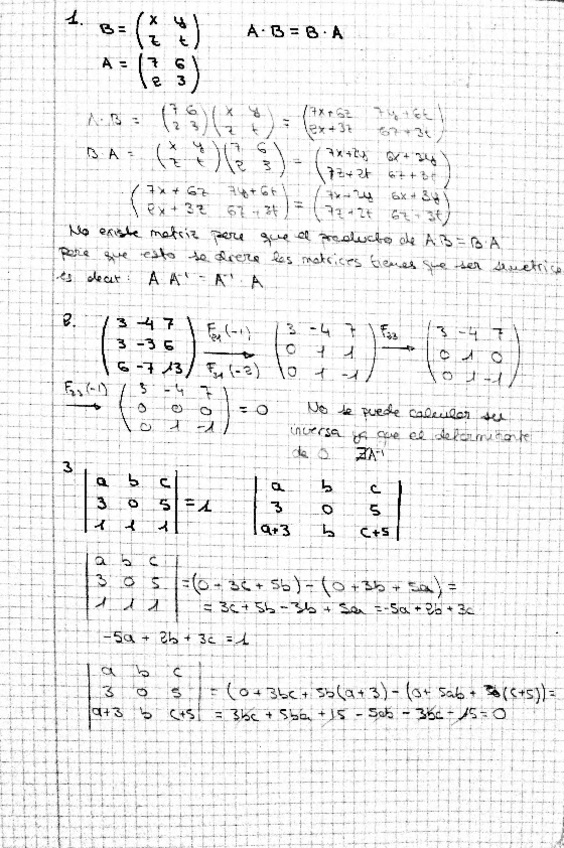 1. B = (x y / z t) A·B = B·A
A = (7 6 / 2 3)
A·B = (7 6 / 2 3)(x y / z t) = (7x+6z 7y+6t / 2x+3z 6z+3t)
B·A = (x y / z t)(7 6 / 2 3) = (7x+2y 6x+3y / 7z+2t 6z+3t)
(7x+6z 7y+6t / 2x+3z 6z+3t) = (7x+2y 6x+3y / 7z+2t 6z+3t)
No existe matriz para que el producto de A·B = B·A
para que esto se diera las matrices tienes que ser simetrica
es decir: A A⁻¹ = A⁻¹·A
2. (3 -4 7 / 3 -3 6 / 6 -7 13) F₂₁(-1) F₃₁(-2) → (3 -4 7 / 0 1 1 / 0 1 -1) F₂₃ → (3 -4 7 / 0 1 0 / 0 1 -1)
F₂₃(-1) → (3 -4 7 / 0 0 0 / 0 1 -1) = 0 No se puede calcular su
inversa ya que el determinante
de 0 ∄A⁻¹
3 |a b c / 3 0 5 / 1 1 1| = 1 |a b c / 3 0 5 / a+3 b c+5|
|a b c / 3 0 5 / 1 1 1| = (0 + 3c + 5b) - (0 + 3b + 5a) =
= 3c + 5b - 3b + 5a = -5a + 2b + 3c
-5a + 2b + 3c = 1
|a b c / 3 0 5 / a+3 b c+5| = (0 + 3bc + 5b(a+3) - (0 + 5ab + 3b(c+5)) =
= 3bc + 5ba + 15 - 5ab - 3bc - 15 = 0